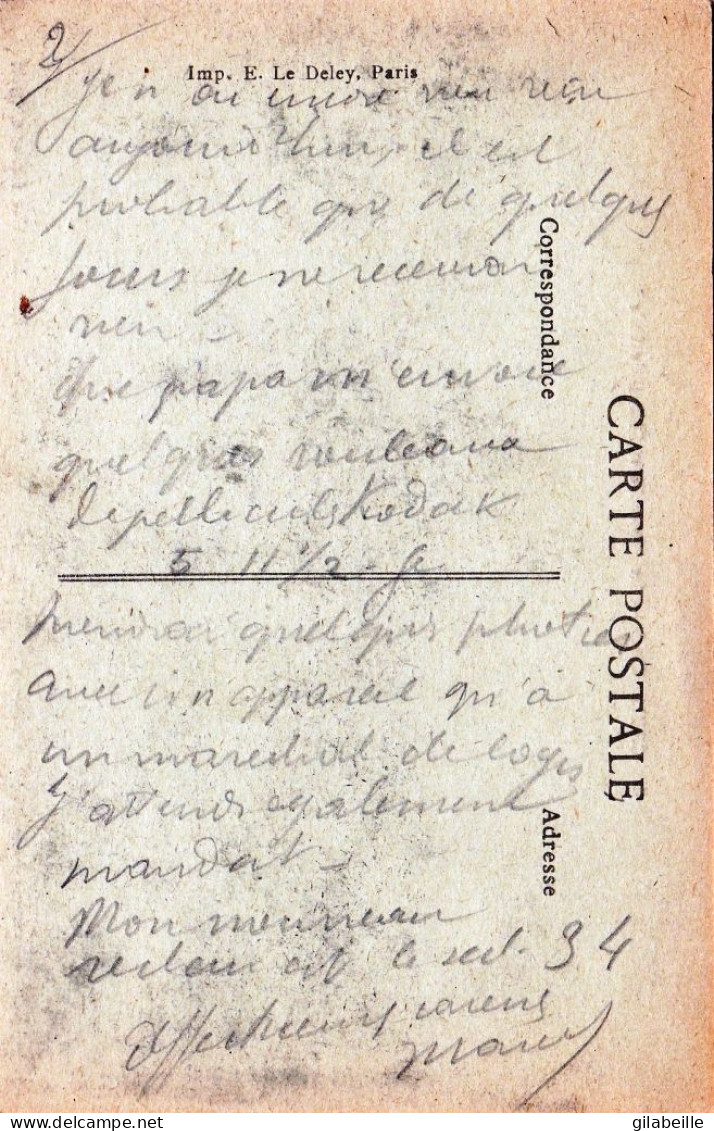 2/
Imp. E. Le Deley, Paris
Je n'ai encore rien reçu
aujourd'hui, il est
probable que de quelques
jours je ne recevrai
rien -
Que papa m'envoie
quelques rouleaux
de pellicules Kodak
5 11 1/2 - Je
prendrai quelques photos
avec un appareil qu'a
un marechal de logis
J'attends egalement
mandat -
Mon nouveau
secteur est le sect. 34
Affectueuses
Marcel
Correspondance
CARTE POSTALE
Adresse
delcampe.net
gilabeille